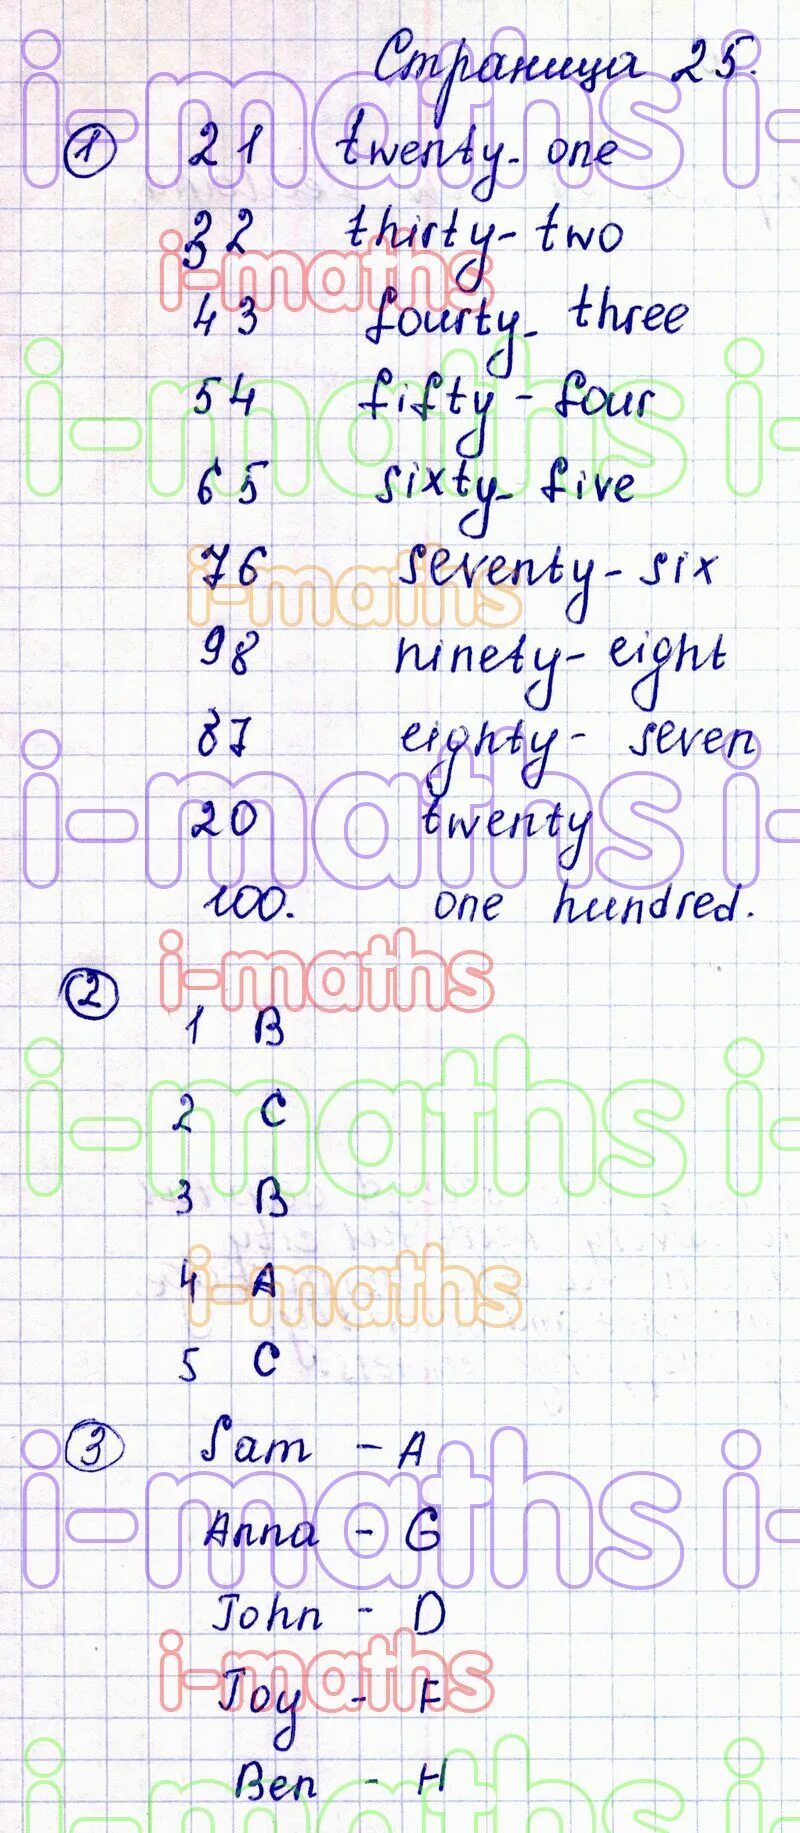 Страница 25.
1 21 twenty-one
32 thirty-two
43 fourty-three
54 fifty-four
65 sixty-five
76 seventy-six
98 ninety-eight
87 eighty-seven
20 twenty
100. one hundred.
2
1 B
2 C
3 B
4 A
5 C
3 Sam - A
Anna - G
John - D
Joy - F
Ben - H
i-maths i-
i-maths
i-maths i-
i-maths
i-maths i-
i-maths
i-maths i-
i-maths
i-maths i-
i-maths
i-maths i-